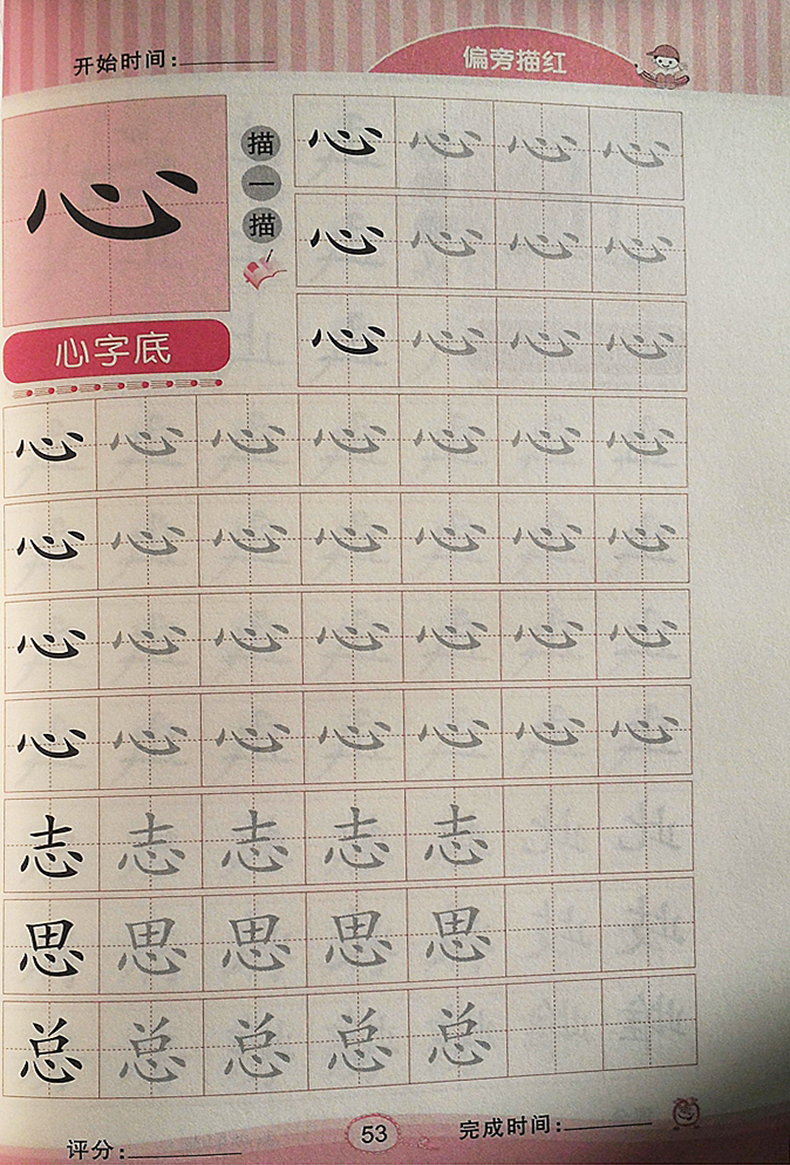 开始时间：
偏旁描红
心
描一描
心字底
心 心 心 心
心 心 心 心
心 心 心 心
心 心 心 心 心 心 心
心 心 心 心 心 心 心
心 心 心 心 心 心 心
心 心 心 心 心 心 心
志 志 志 志 志
思 思 思 思 思
总 总 总 总 总
评分：
53
完成时间：